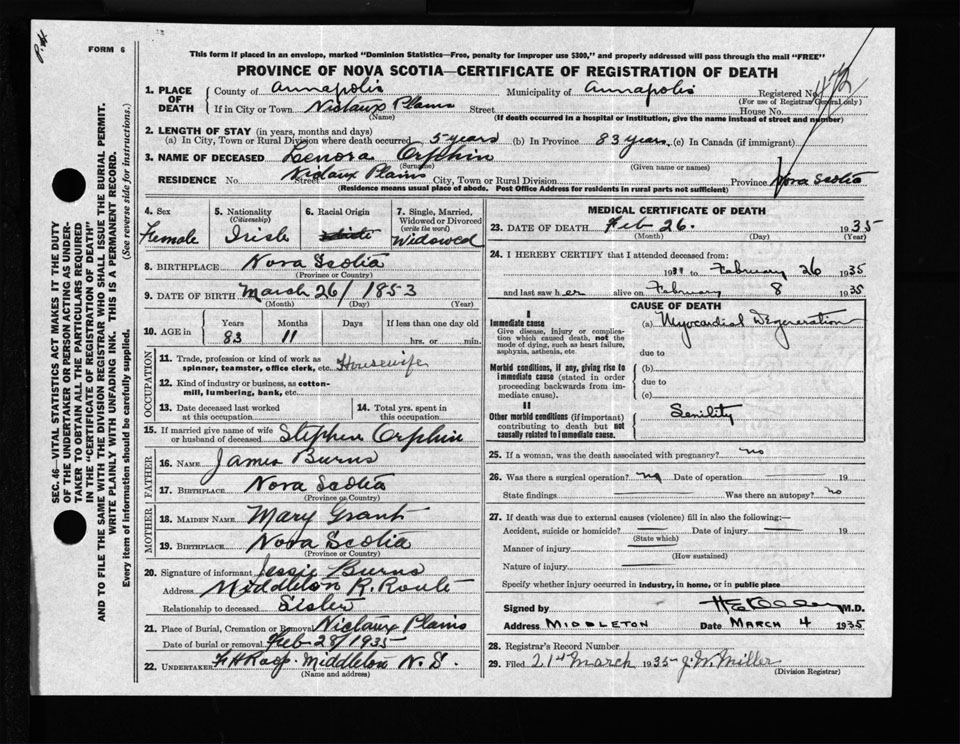 P.H.
FORM 6
This form if placed in an envelope, marked "Dominion Statistics—Free, penalty for improper use $300," and properly addressed will pass through the mail "FREE"
PROVINCE OF NOVA SCOTIA—CERTIFICATE OF REGISTRATION OF DEATH
1. PLACE OF DEATH County of Annapolis Municipality of Annapolis Registered No.
(For use of Registrar General only)
If in City or Town Nictaux Plains Street House No.
(Name) (If death occurred in a hospital or institution, give the name instead of street and number)
2. LENGTH OF STAY (in years, months and days)
(a) In City, Town or Rural Division where death occurred 5 years (b) In Province 83 years (c) In Canada (if immigrant)
3. NAME OF DECEASED Lenora Orphin
(Surname) (Given name or names)
RESIDENCE No. Street Nictaux Plains City, Town or Rural Division Province Nova Scotia
(Residence means usual place of abode. Post Office Address for residents in rural parts not sufficient)
4. Sex Female
5. Nationality (Citizenship) Irish
6. Racial Origin
7. Single, Married, Widowed or Divorced (write the word) Widowed
8. BIRTHPLACE Nova Scotia
(Province or Country)
9. DATE OF BIRTH March 26/ 1853
(Month) (Day) (Year)
10. AGE in Years 83 Months 11 Days If less than one day old hrs. or min.
OCCUPATION
11. Trade, profession or kind of work as spinner, teamster, office clerk, etc. Housewife
12. Kind of industry or business, as cotton-mill, lumbering, bank, etc.
13. Date deceased last worked at this occupation
14. Total yrs. spent in this occupation
15. If married give name of wife or husband of deceased Stephen Orphin
FATHER
16. Name James Burns
17. Birthplace Nova Scotia
(Province or Country)
MOTHER
18. Maiden Name Mary Grant
19. Birthplace Nova Scotia
(Province or Country)
20. Signature of informant Jessie Burns
Address Middleton R. Route
Relationship to deceased Sister
21. Place of Burial, Cremation or Removal Nictaux Plains
Date of burial or removal Feb. 28/1935
22. UNDERTAKER Middleton N.S.
(Name and address)
MEDICAL CERTIFICATE OF DEATH
23. DATE OF DEATH Feb 26. 1935
(Month) (Day) (Year)
24. I HEREBY CERTIFY that I attended deceased from:
to February 26 1935
and last saw her alive on February 8 1935
CAUSE OF DEATH
I
Immediate cause (a) Myocardial Degeneration
Give disease, injury or complication which caused death, not the mode of dying, such as heart failure, asphyxia, asthenia, etc.
due to
Morbid conditions, if any, giving rise to immediate cause (stated in order proceeding backwards from immediate cause). (b)
due to
(c)
II
Other morbid conditions (if important) contributing to death but not causally related to immediate cause. Senility
25. If a woman, was the death associated with pregnancy? no
26. Was there surgical operation? no Date of operation 19
State findings Was there an autopsy? no
27. If death was due to external causes (violence) fill in also the following:—
Accident, suicide or homicide? Date of injury 19
(State which)
Manner of injury
(How sustained)
Nature of injury
Specify whether injury occurred in industry, in home, or in public place
Signed by M.D.
Address MIDDLETON Date MARCH 4 1935
28. Registrar's Record Number
29. Filed 21st March 1935 J. W. Miller
(Division Registrar)
SEC. 46—VITAL STATISTICS ACT MAKES IT THE DUTY
OF THE UNDERTAKER OR PERSON ACTING AS UNDER-
TAKER TO OBTAIN ALL THE PARTICULARS REQUIRED
IN THE "CERTIFICATE OF REGISTRATION OF DEATH"
AND TO FILE THE SAME WITH THE DIVISION REGISTRAR WHO SHALL ISSUE THE BURIAL PERMIT.
WRITE PLAINLY WITH UNFADING INK. THIS IS A PERMANENT RECORD.
Every item of information should be carefully supplied. (See reverse side for instructions.)